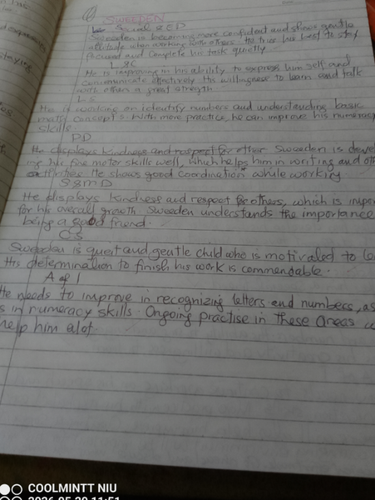 SWEEDEN
Social & E D
Sweeden is becoming more confident and shows gentle
attitude when working with others. He tries his best to stay
focused and complete his task quietly
L & C
He is improving in his ability to express him self and
communicate effectively. His willingness to learn and talk
with others is a great strength
L S
He is working on identify numbers and understanding basic
maths concepts. With more practice, he can improve his numeracy
skills.
P D
He displays kindness and respect for other Sweeden is develo
his fine motor skills well, which helps him in writing and oth
activities. He shows good Coordination while working
S & M D
He displays kindness and respect for others, which is impor
for his overall growth Sweeden understands the importance
being a good friend.
C S
Sweeden is quiet and gentle child who is motivated to le
His determination to finish his work is commendable.
A of I
He needs to improve in recognizing letters and numbers, as
in numeracy skills. Ongoing practise in these areas w
help him alot
COOLMINTT NIU